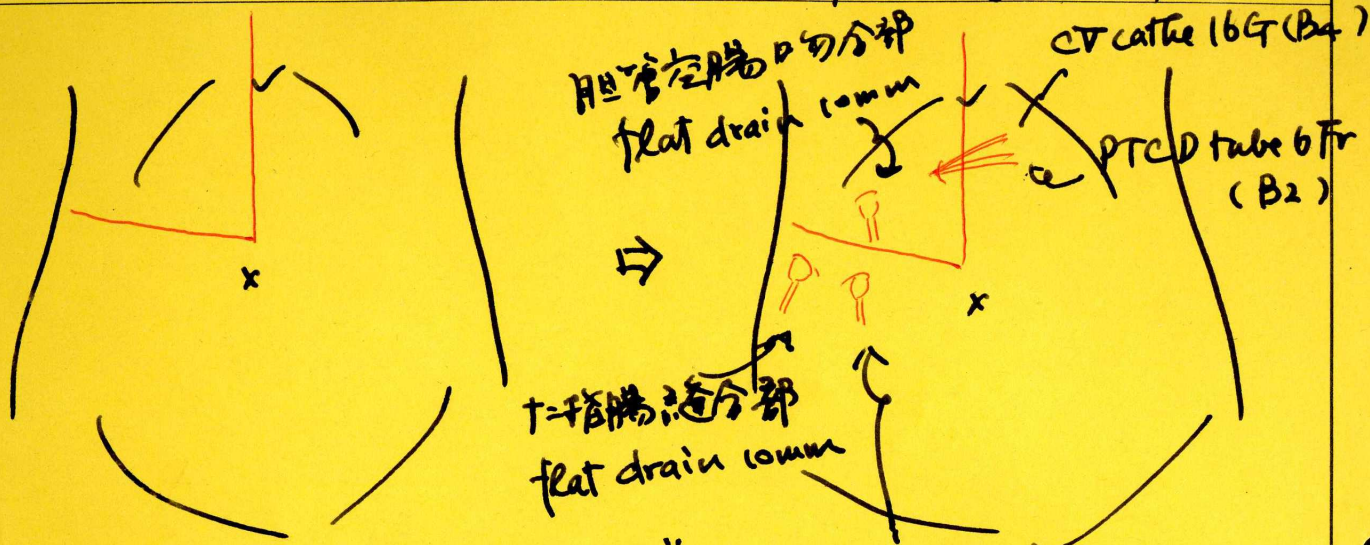 胆管空腸吻合部
flat drain 10mm
CV cathe 16G (B4)
PTCD tube 6Fr
(B2)
x
x
十二指腸縫合部
flat drain 10mm